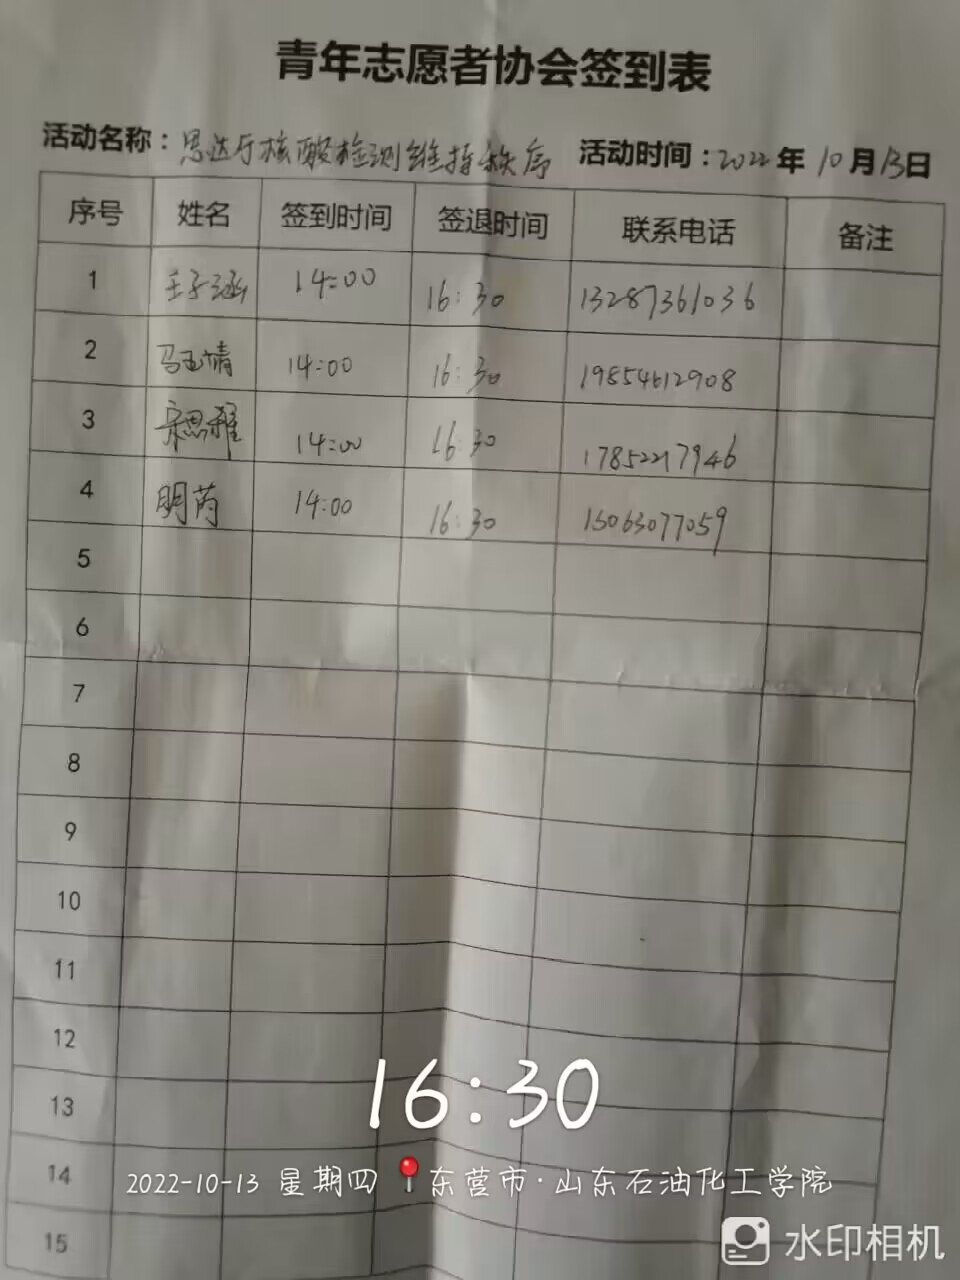 青年志愿者协会签到表
活动名称：思达厅核酸检测维持秩序 活动时间：2022年10月13日
序号 姓名 签到时间 签退时间 联系电话 备注
1 王子涵 14:00 16:30 13287361036
2 马玉倩 14:00 16:30 19854612908
3 宋思雅 14:00 16:30 17852217946
4 明芮 14:00 16:30 15063077059
5
6
7
8
9
10
11
12
13
14
15
16:30
2022-10-13 星期四 东营市·山东石油化工学院
水印相机